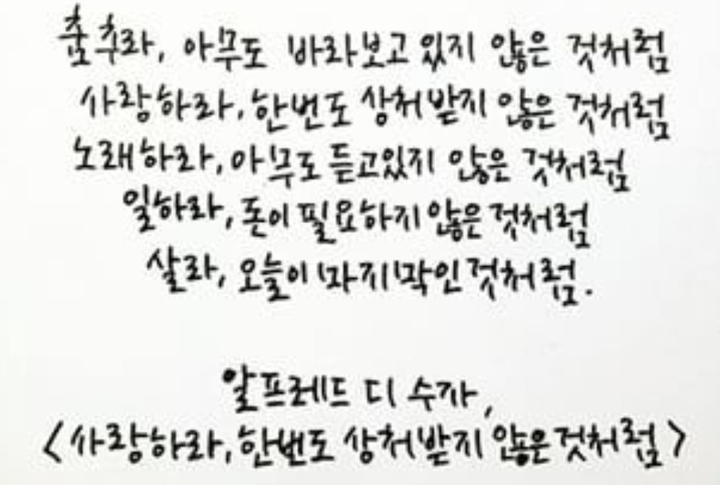 춤추라, 아무도 바라보고 있지 않은 것처럼
사랑하라, 한번도 상처받지 않은 것처럼
노래하라, 아무도 듣고있지 않은 것처럼
일하라, 돈이 필요하지 않은것처럼
살라, 오늘이 마지막인것처럼.
알프레드 디 수자,
<사랑하라, 한번도 상처받지 않은것처럼>